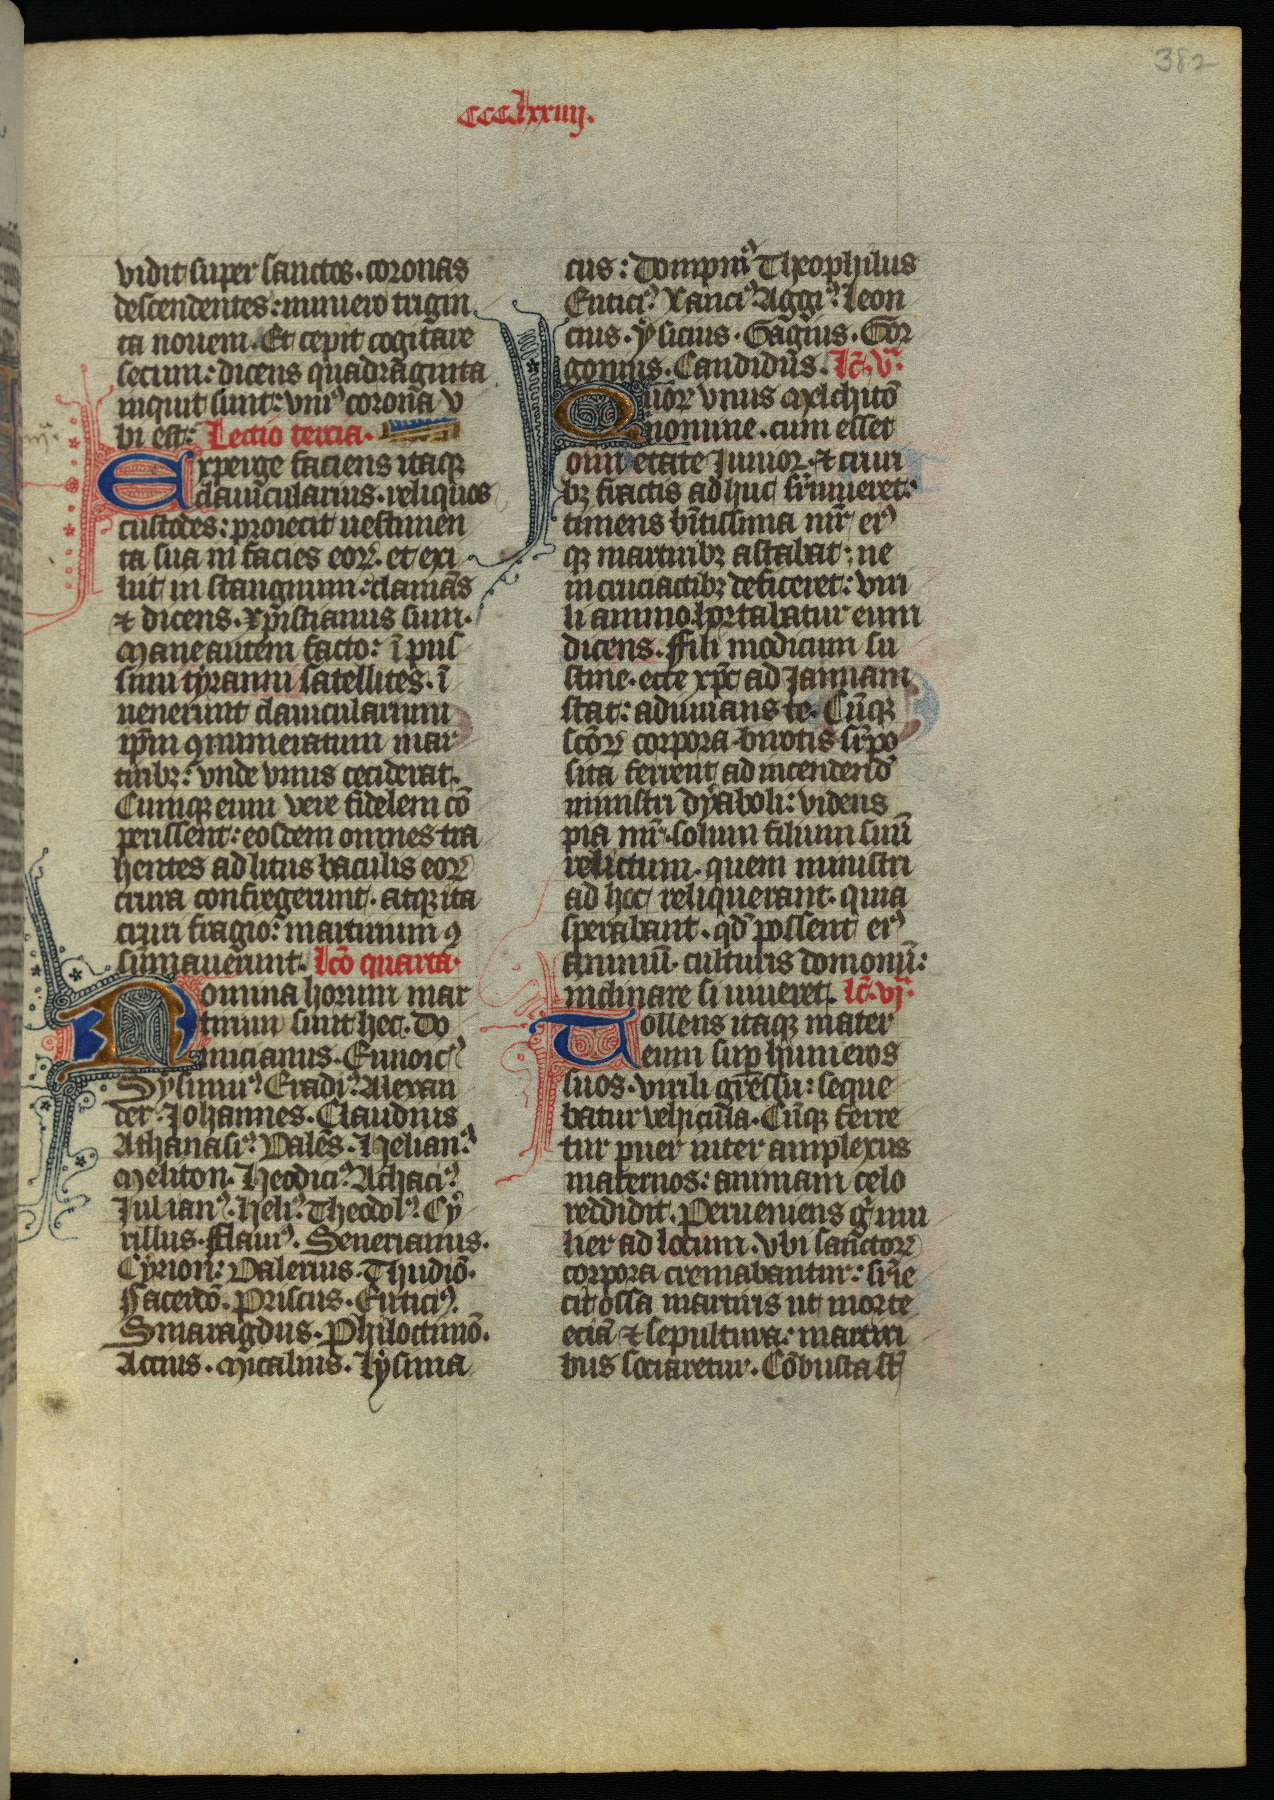 382
ccclxxiiij.
vidit super sanctos. coronas
descendentes: numero trigin
ta novem. Et cepit cogitare
secum: dicens quadraginta
inquit sunt: uniꝰ corona u
bi est: Lectio tercia.
Experge faciens itaqꝫ
clavicularius. reliquos
custodes: proiecit vestimen
ta sua in facies eoꝝ. et exi
luit in stangnum: clamās
⁊ dicens. xp̄istianus sum.
Mane autem facto: ī puſ
simi tyranni satellites. ī
venerunt clavicularium
ip̄m ꝯnumeratum mar
tiribꝫ: unde unus ceciderat.
Cumqꝫ eum vere fidelem cō
perissent: eosdem omnes tra
hentes ad litus baculis eoꝝ
crura confregerunt. atqꝫ ita
cruri fragio: martirium ꝯ
sumaverunt. lc̄o quarta.
Nomina horum mar
tirum sunt hec. Do
micianus. Eunoicꝰ
Sysinniꝰ Eradiꝰ Alexan
der. Johannes. Claudius
Athanasiꝰ. Vales. Helianꝰ.
Meliton. Heodiciꝰ. Athaciꝰ
Julianꝰ. heliꝰ. Theodolꝰ. Cy
rillus. Flaviꝰ. Severianus.
Cyrion. Valerius. Thudiō.
Sacerdō. Priscus. Euticiꝰ.
Smaragdus. Philoctimō.
Actius. Micalius. Lysima
cus: Dompniꝰ Theophilus
Euticiꝰ Xanciꝰ Aggiꝰ. Leon
cius. Ysicius. Gagius. Gor
gonius. Candidus. lc̄. v̄.
Quoꝝ unus melchitō
nomine. cum esset
om̄i etate Junior. ⁊ cruri
bꝫ fractis adhuc supviveret:
timens bt̄issima mr̄ eiꝰ
qꝫ martiribꝫ astabat: ne
in cruciactibꝫ deficeret: viri
li animo hortabatur eum
dicens. Fili modicum su
stine. ecce xp̄c ad Januam
stat: adiuvans te. Cūqꝫ
scōꝝ corpora bivotis supo
sita ferrent ad incendendō
ministri dyaboli: videns
pia mr̄. solum filium suū
relictum. quem ministri
ad hoc reliquerant. quia
sperabant. qd̄ possent eiꝰ
animū. culturis domoniū:
inclinare si viveret. lc̄. vj̄.
Tollens itaqꝫ mater
eum sup humeros
suos. virili gressu: seque
batur vehicula. Cūqꝫ ferre
tur puer inter amplexus
maternos: animam celo
reddidit. Perveniens gͦ mu
lier ad locum. ubi sanctoꝝ
corpora cremabantur: suꝑie
cit ossa martiris ut morte
eciā ⁊ sepultura: martiri
bus sociaretur. Cōbusta st̄